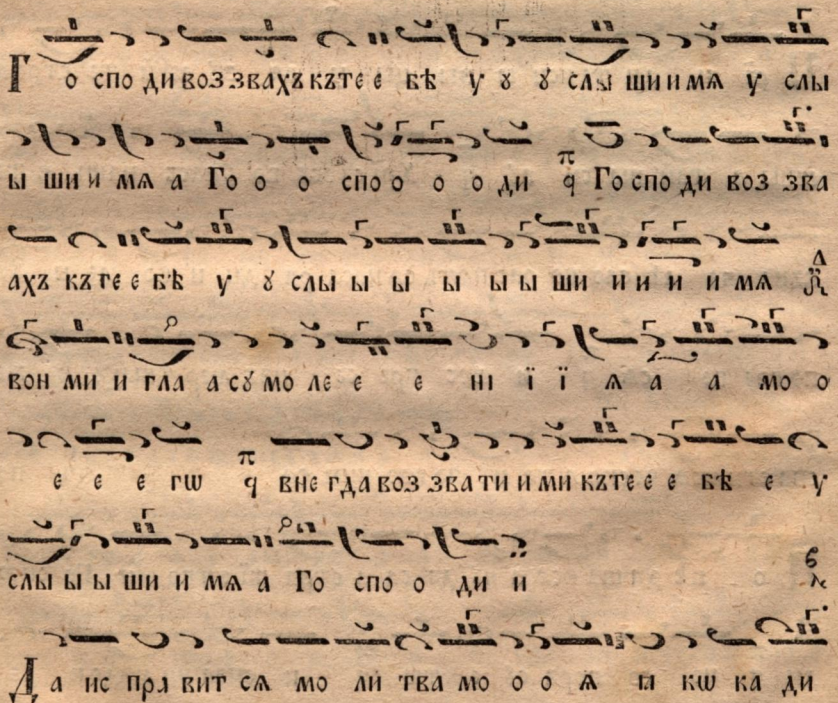 Го спо ди воз звахъ къ те е бѣ у ꙋ ꙋ слы ши и мѧ у слы
ы ши и мѧ а Го о о спо о о о ди Го спо ди воз зва
ахъ къ те е бѣ у ꙋ слы ы ы ы ы ы ши и и и и мѧ
вон ми и гла а сꙋ мо ле е е нї ї ї ѧ а а мо о
е е е гѡ вне гда воз зва ти и ми къ те е е бѣ е у
слы ы ы ши и мѧ а Го спо о ди и
Да ис пра вит сѧ мо ли тва мо о о ѧ ꙗ кѡ ка ди